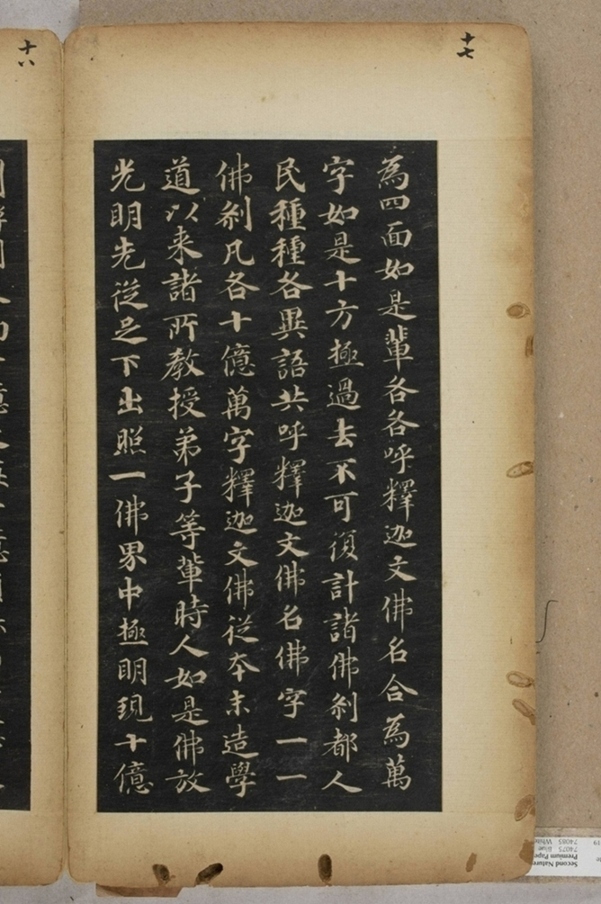 十七
為四面如是輩各各呼釋迦文佛名合為萬
字如是十方極過去不可復計諸佛刹都人
民種種各異語共呼釋迦文佛名佛字一一
佛刹凡各十億萬字釋迦文佛從本未造學
道以来諸所教授弟子等輩時人如是佛放
光明先從足下出照一佛界中極明現十億
十八
Second Nature
Premium Pape
74075
74085 White
19